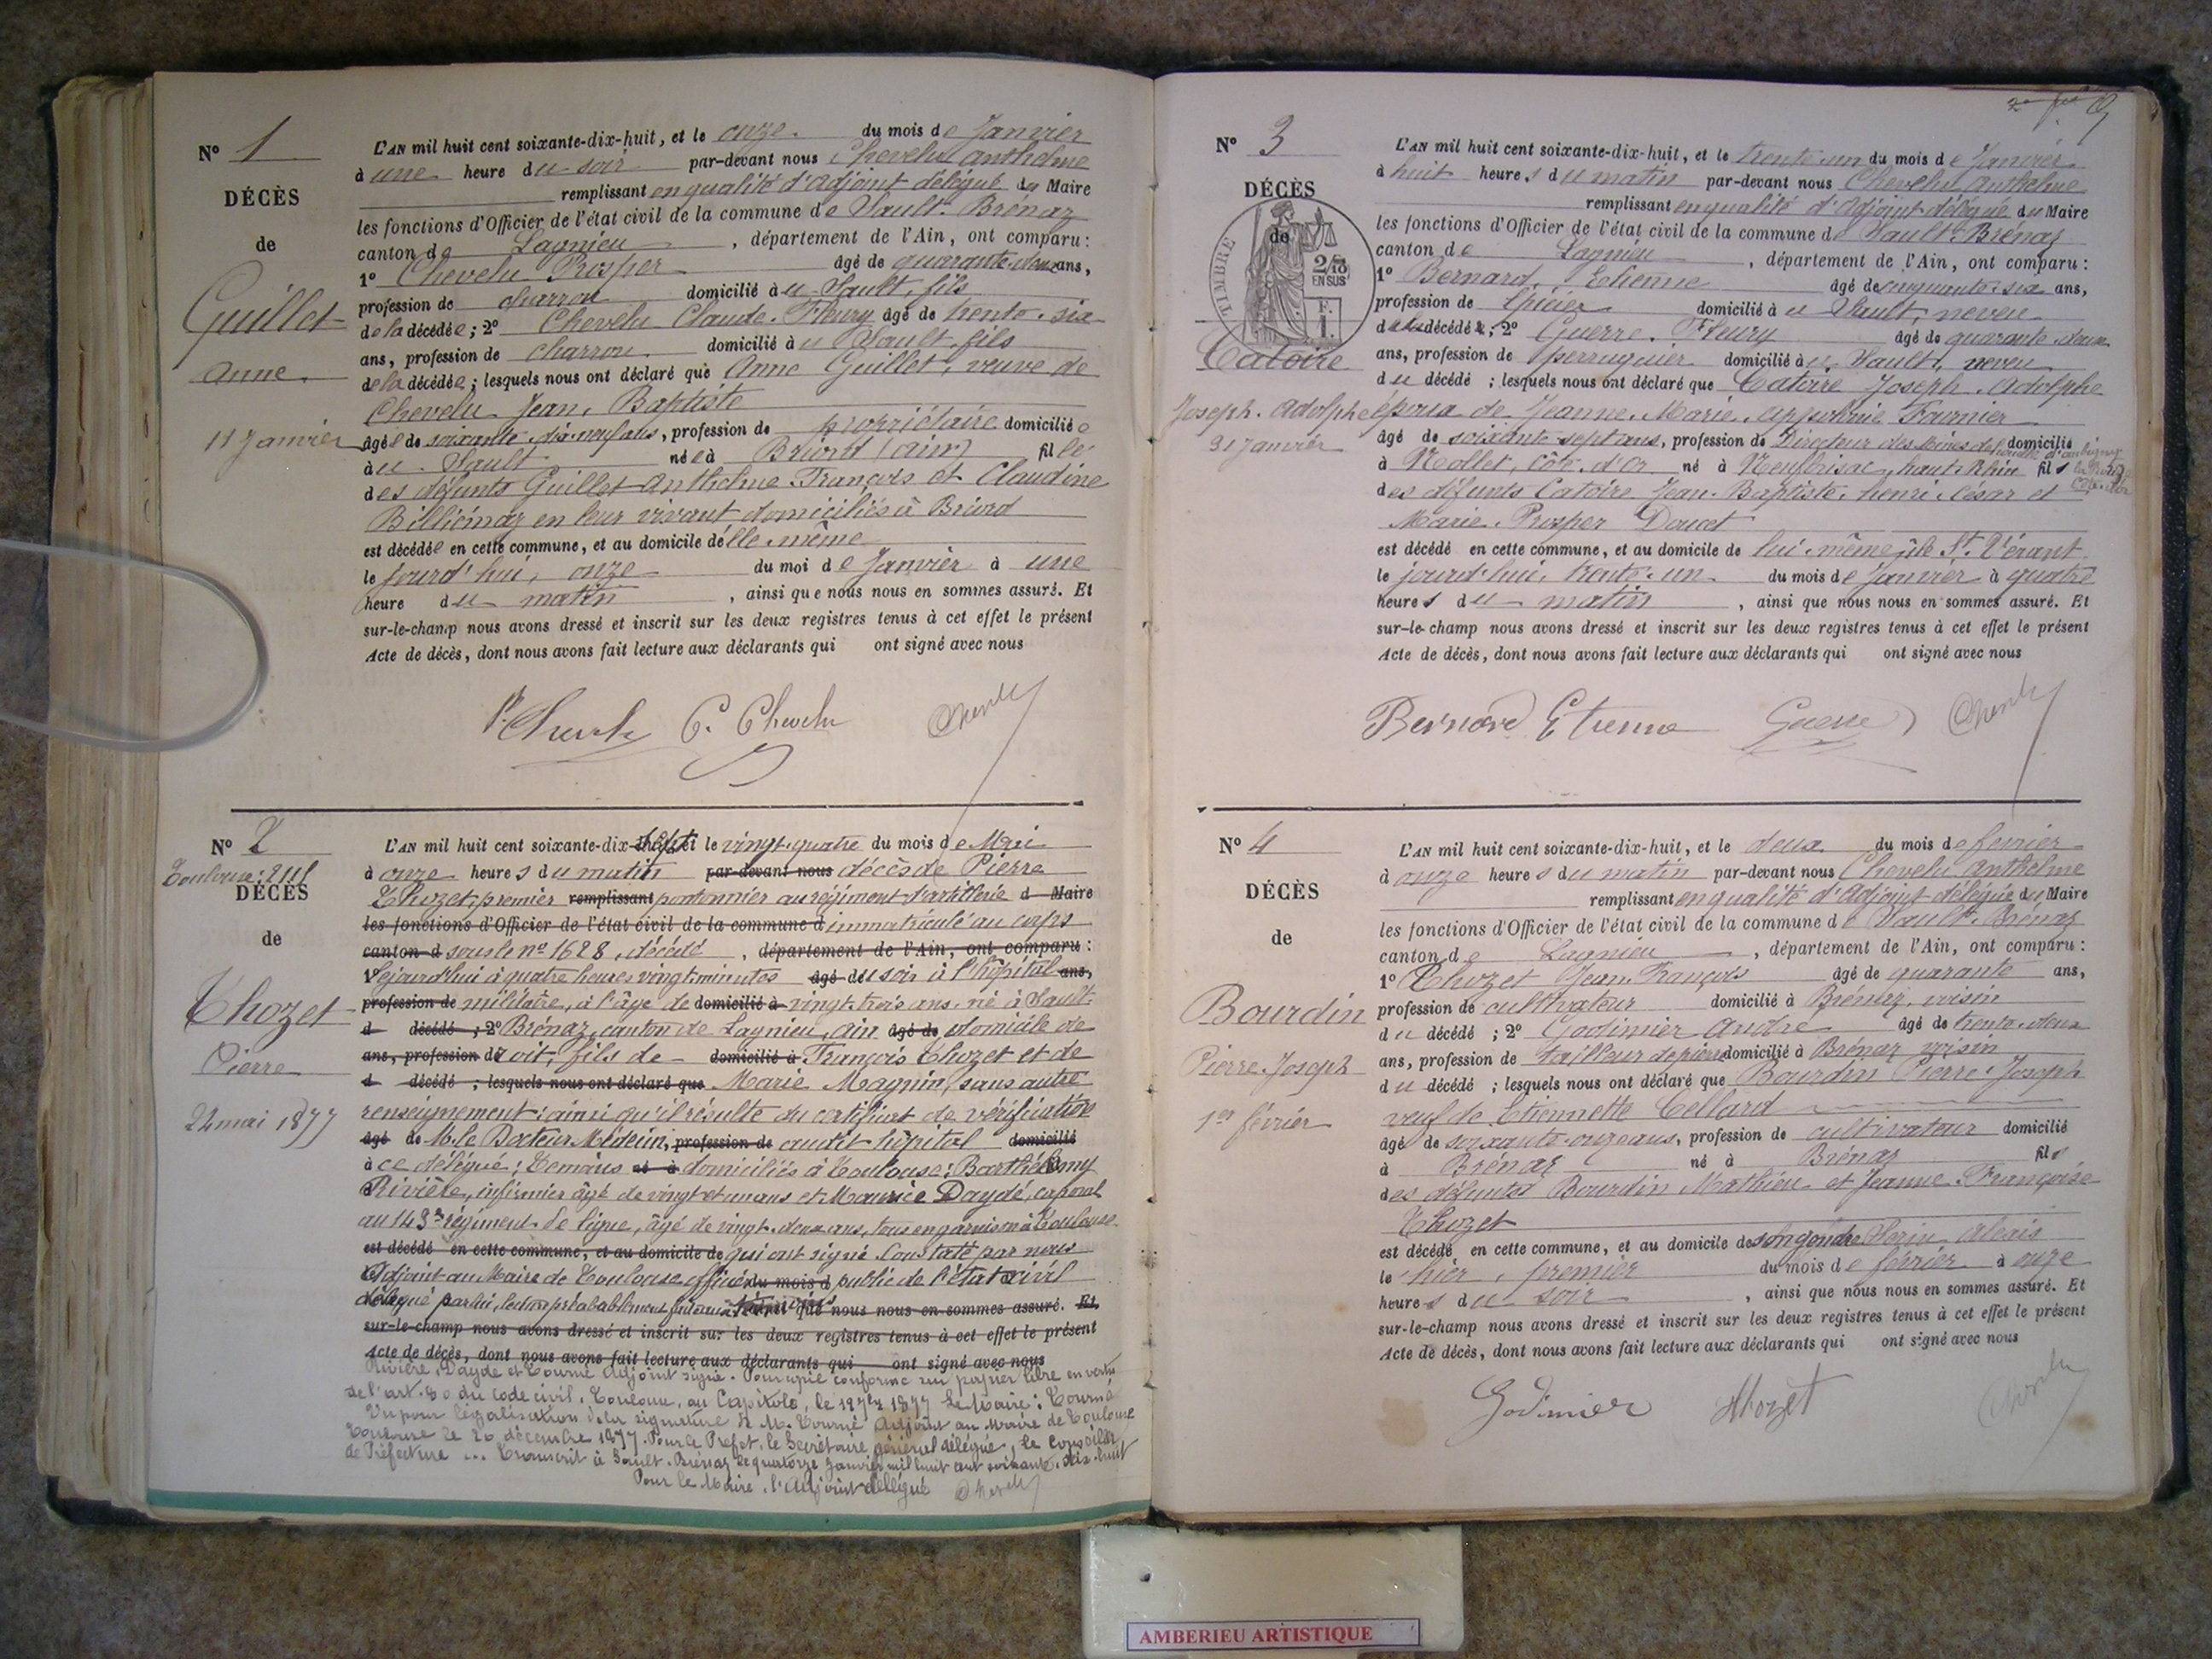 N° 1
DÉCÈS
de
Guillet
Anne
11 Janvier
L'AN mil huit cent soixante-dix-huit, et le onze du mois de Janvier
à une heure du soir par-devant nous Chevelu Anthelme
remplissant en qualité d'Adjoint délégué du Maire
les fonctions d'Officier de l'état civil de la commune de Sault-Brénaz
canton de Lagnieu, département de l'Ain, ont comparu :
1° Chevelu Prosper âgé de quarante-deux ans,
profession de charron domicilié à u Sault, fils
de la décédée ; 2° Chevelu Claude-Fleury âgé de trente-six
ans, profession de charron domicilié à u Sault, fils
de la décédée ; lesquels nous ont déclaré que Anne Guillet, veuve de
Chevelu Jean-Baptiste
âgée de soixante-dix-neuf ans, profession de propriétaire domiciliée
à u Sault née à Briord (Ain) fille
des défunts Guillet Anthelme François et Claudine
Billiémaz en leur vivant domiciliés à Briord
est décédée en cette commune, et au domicile d'elle-même
le jourd'hui, onze du moi de Janvier à une
heure du matin, ainsi que nous nous en sommes assuré. Et
sur-le-champ nous avons dressé et inscrit sur les deux registres tenus à cet effet le présent
Acte de décès, dont nous avons fait lecture aux déclarants qui ont signé avec nous
P. Chevelu C. Chevelu Chevelu
N° 2
Toulouse :
DÉCÈS
de
Thozet
Pierre
24 mai 1877
L'AN mil huit cent soixante-dix-sept et le vingt-quatre du mois de Mai
à onze heures du matin par-devant nous décès de Pierre
Thozet, premier remplissant pontonnier au régiment d'artillerie d Maire
les fonctions d'Officier de l'état civil de la commune d immatriculé au corps
canton d sous le n° 1628, décédé, département de l'Ain, ont comparu :
1° le jourd'hui à quatre heures vingt minutes âgé de du soir à l'hôpital ans,
profession de militaire, à l'âge de domicilié à vingt-trois ans, né à Sault-
d décédé ; 2° Brénaz, canton de Lagnieu, Ain âgé de domicile de
ans, profession de droit, fils de domicilié à François Thozet et de
d décédé ; lesquels nous ont déclaré que Marie Magnin, sans autre
renseignement : ainsi qu'il résulte du certificat de vérification
âgé de M. le Docteur Médecin, profession de audit hôpital domicilié
à ce délégué ; Témoins né à domiciliés à Toulouse : Barthélemy
Rivière, infirmier âgé de vingt et un ans et Maurice Daydé, caporal
au 143e régiment de ligne, âgé de vingt-deux ans, tous en garnison à Toulouse
est décédé en cette commune, et au domicile de qui ont signé. Constaté par nous
Adjoint au Maire de Toulouse officier du mois d public de l'état civil
délégué par lui, lecture préalablement faite aux témoins que nous nous en sommes assuré. Et
sur-le-champ nous avons dressé et inscrit sur les deux registres tenus à cet effet le présent
Acte de décès, dont nous avons fait lecture aux déclarants qui ont signé avec nous
Rivière, Daydé et Tourné Adjoint signé. Pour copie conforme sur papier libre en vertu
de l'art. 80 du code civil. Toulouse, au Capitole, le 1877 Le Maire : Tourné
Vu pour légalisation de la signature de M. Tourné Adjoint au Maire de Toulouse
Toulouse le 26 décembre 1877. Pour le Préfet, le Secrétaire général délégué, le Conseiller
de Préfecture ... Transcrit à Sault-Brénaz le quatorze Janvier mil huit cent soixante-dix-huit
Pour le Maire, l'Adjoint délégué Chevelu
N° 3
DÉCÈS
de
TIMBRE
2/10 EN SUS
Catoire
Joseph-Adolphe
31 Janvier
L'AN mil huit cent soixante-dix-huit, et le trente-un du mois de Janvier
à huit heures du matin par-devant nous Chevelu Anthelme
remplissant en qualité d'Adjoint délégué du Maire
les fonctions d'Officier de l'état civil de la commune de Sault-Brénaz
canton de Lagnieu, département de l'Ain, ont comparu :
1° Bernard, Etienne âgé de cinquante-six ans,
profession de épicier domicilié à u Sault, neveu
du décédé ; 2° Guerre-Fleury âgé de quarante-deux
ans, profession de perruquier domicilié à u Sault, neveu
du décédé ; lesquels nous ont déclaré que Catoire Joseph-Adolphe
époux de Jeanne-Marie-Appolonie Fournier
âgé de soixante-sept ans, profession de Directeur des Mines de houille d'Aubigny la Ronce Côte-d'Or domicilié
à Nollet, Côte-d'Or né à Neufbrisac, haut Rhin fils
des défunts Catoire Jean-Baptiste-henri-César et
Marie-Prosper Doucet
est décédé en cette commune, et au domicile de lui-même, île St. Vérant
le jourd'hui, trente-un du mois de Janvier à quatre
heures du matin, ainsi que nous nous en sommes assuré. Et
sur-le-champ nous avons dressé et inscrit sur les deux registres tenus à cet effet le présent
Acte de décès, dont nous avons fait lecture aux déclarants qui ont signé avec nous
Bernard Etienne Guerre Chevelu
N° 4
DÉCÈS
de
Bourdin
Pierre-Joseph
1er février
L'AN mil huit cent soixante-dix-huit, et le deux du mois de février
à onze heures du matin par-devant nous Chevelu Anthelme
remplissant en qualité d'Adjoint délégué du Maire
les fonctions d'Officier de l'état civil de la commune de Sault-Brénaz
canton de Lagnieu, département de l'Ain, ont comparu :
1° Thozet Jean-François âgé de quarante ans,
profession de cultivateur domicilié à Brénaz, voisin
du décédé ; 2° Godinier André âgé de trente-deux
ans, profession de tailleur de pierre domicilié à Brénaz voisin
du décédé ; lesquels nous ont déclaré que Bourdin Pierre-Joseph
veuf de Etiennette Cellard
âgé de soixante-onze ans, profession de cultivateur domicilié
à Brénaz né à Brénaz fils
des défunts Bourdin Mathieu et Jeanne-Françoise
Thozet
est décédé en cette commune, et au domicile de son gendre Serin Alexis
le hier, premier du mois de février à onze
heures du soir, ainsi que nous nous en sommes assuré. Et
sur-le-champ nous avons dressé et inscrit sur les deux registres tenus à cet effet le présent
Acte de décès, dont nous avons fait lecture aux déclarants qui ont signé avec nous
Godinier Thozet Chevelu
AMBERIEU ARTISTIQUE